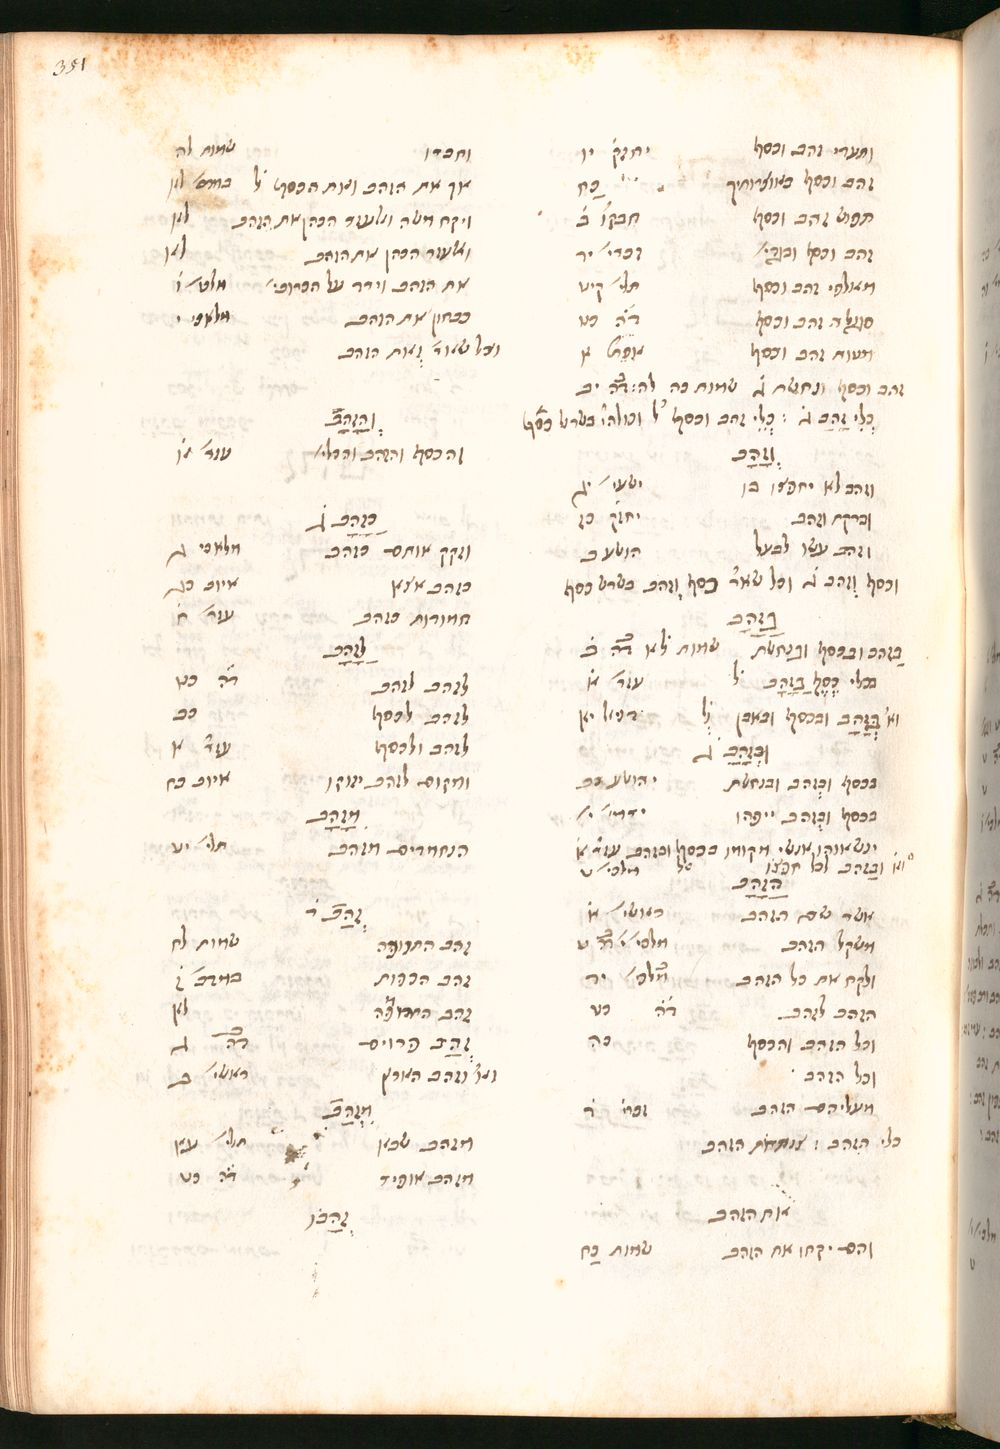 351
ותעדי זהב וכסף יחזק׳ יו
זהב וכסף באוצרותיך כח
תפוש זהב וכסף חבקו׳ ב
זהב וכסף ובגדי׳ זכרי׳ יד
מאלפי זהב וכסף תלי׳ קיט
סגולה זהב וכסף ד״ה כט
מעות זהב וכסף א
זהב וכסף ונחשת ג שמות כה לה ד״ה יב
כלי זהב ג : כלי זהב וכסף ל׳ וכולהו׳ בשרש כסף
וזהב
וזהב לא יחפצו בו ישעי׳ יג
וברקת וזהב יחזק׳ כז
וזהב עשו לבעל הושע ב
וכסף וזהב ג וכל שאר׳ כסף וזהב בשרש כסף
בזהב
בזהב ובכסף ובנחשת שמות לא ד״ה ב
בכלי כסף בזהב ל׳ עזר׳ א
וא׳ בזהב ובכסף ובאבן ל׳ דניאל יא
ובזהב ג
בכסף ובזהב ובנחשת יהושע כב
בכסף ובזהב ייפהו ירמי׳ י׳
ינשאוהו אנשי מקומו בכסף ובזהב עזר׳ א
ובזהב לכל חפצו מלכי׳ ט
הזהב
אשר שם הזהב ראשי׳ א
משקל הזהב מלכי׳ י׳ ד״ה ט
ולקח את כל הזהב מלכי׳ יד
הזהב לזהב ד״ה כט
וכל הזהב והכסף כה
וכל הזהב
מעליהם הזהב זכרי׳ ד
כלי הזהב : צנתרות הזהב
את הזהב
והם יקחו את הזהב שמות כח
וחברו שמות לה
אך את הזהב ואת הכסף ל׳ במדב׳ לא
ויקח משה ואלעזר הכהן את הזהב לא
ואלעזר הכהן את הזהב לא
את הזהב וירד על הכרובי׳ מלכי׳ ו
כבחון את הזהב
וכל שאר׳ ואת הזהב
והזהב
והכסף והזהב והכלי׳ עזר׳ ח
כזהב ג
וזקק אותם כזהב מלאכי ג
כזהב אצא איוב כג
חמודות כזהב עזר׳ ח
לזהב
לזהב לזהב ד״ה כט
לזהב לכסף כב
לזהב ולכסף עזר׳ א
ומקום לזהב יזוקו איוב כח
מזהב
הנחמדים מזהב תלי׳ יט
זהב ד
זהב התנופה שמות לח
זהב הכפות במדב׳ ז
זהב התרומה לא
זהב פרוים ד״ה ג
וא׳ וזהב הארץ ראשי׳ ב
מזהב
מזהב שבא תלי׳ עב
מזהב אופיר ד״ה כט
זהבו